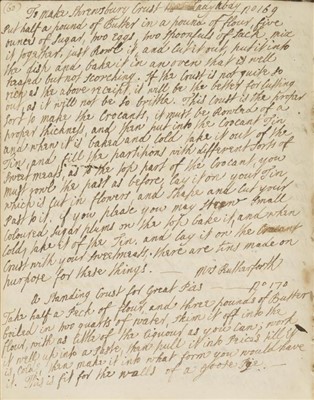 To Make Shrewsbury Crust No 169
Put half a pound of Butter in a pound of flour, five
ounces of Sugar, two eggs, two spoonfuls of Sack, mix
it together, just Rowl it and cut it out, put it into
the dish, and bake it in an oven that is well
heated but not scorching. if the Crust is not quite so
rich as the above receipt it will be the better for Cutting
out, as it will not be so brittle. This Crust is the proper
sort to make the Crocants, it must be Rowled to a
proper thickness, and then put into the Crocant Tin
and when it is baked and cold take it out of the
Tin, and fill the partitions with different sorts of
Sweetmeats, as to the top part of the Crocant, you
must rowl the past as before, lay it on your Tin,
which is cut in flowers and shape and Cut your
Past to it. if you please you may Strew small
Coloured Sugar plums on the top bake it, and when
Cold, take it of the Tin, and lay it on the Crocant
Crust with your sweetmeats, there are tins made on
purpose for these things. Mrs Rutherforth
A Standing Crust for Great Pies No 170
Take half a Peck of flour, and three pounds of Butter
boiled in two quarts of water, skim it off into the
flour, with as little of the Liquour as you can, work
it well up into a paste, then pull it into Peices till it
is Cold, then make it into what form you would have
it. This is fit for the walls of a goose Pye.